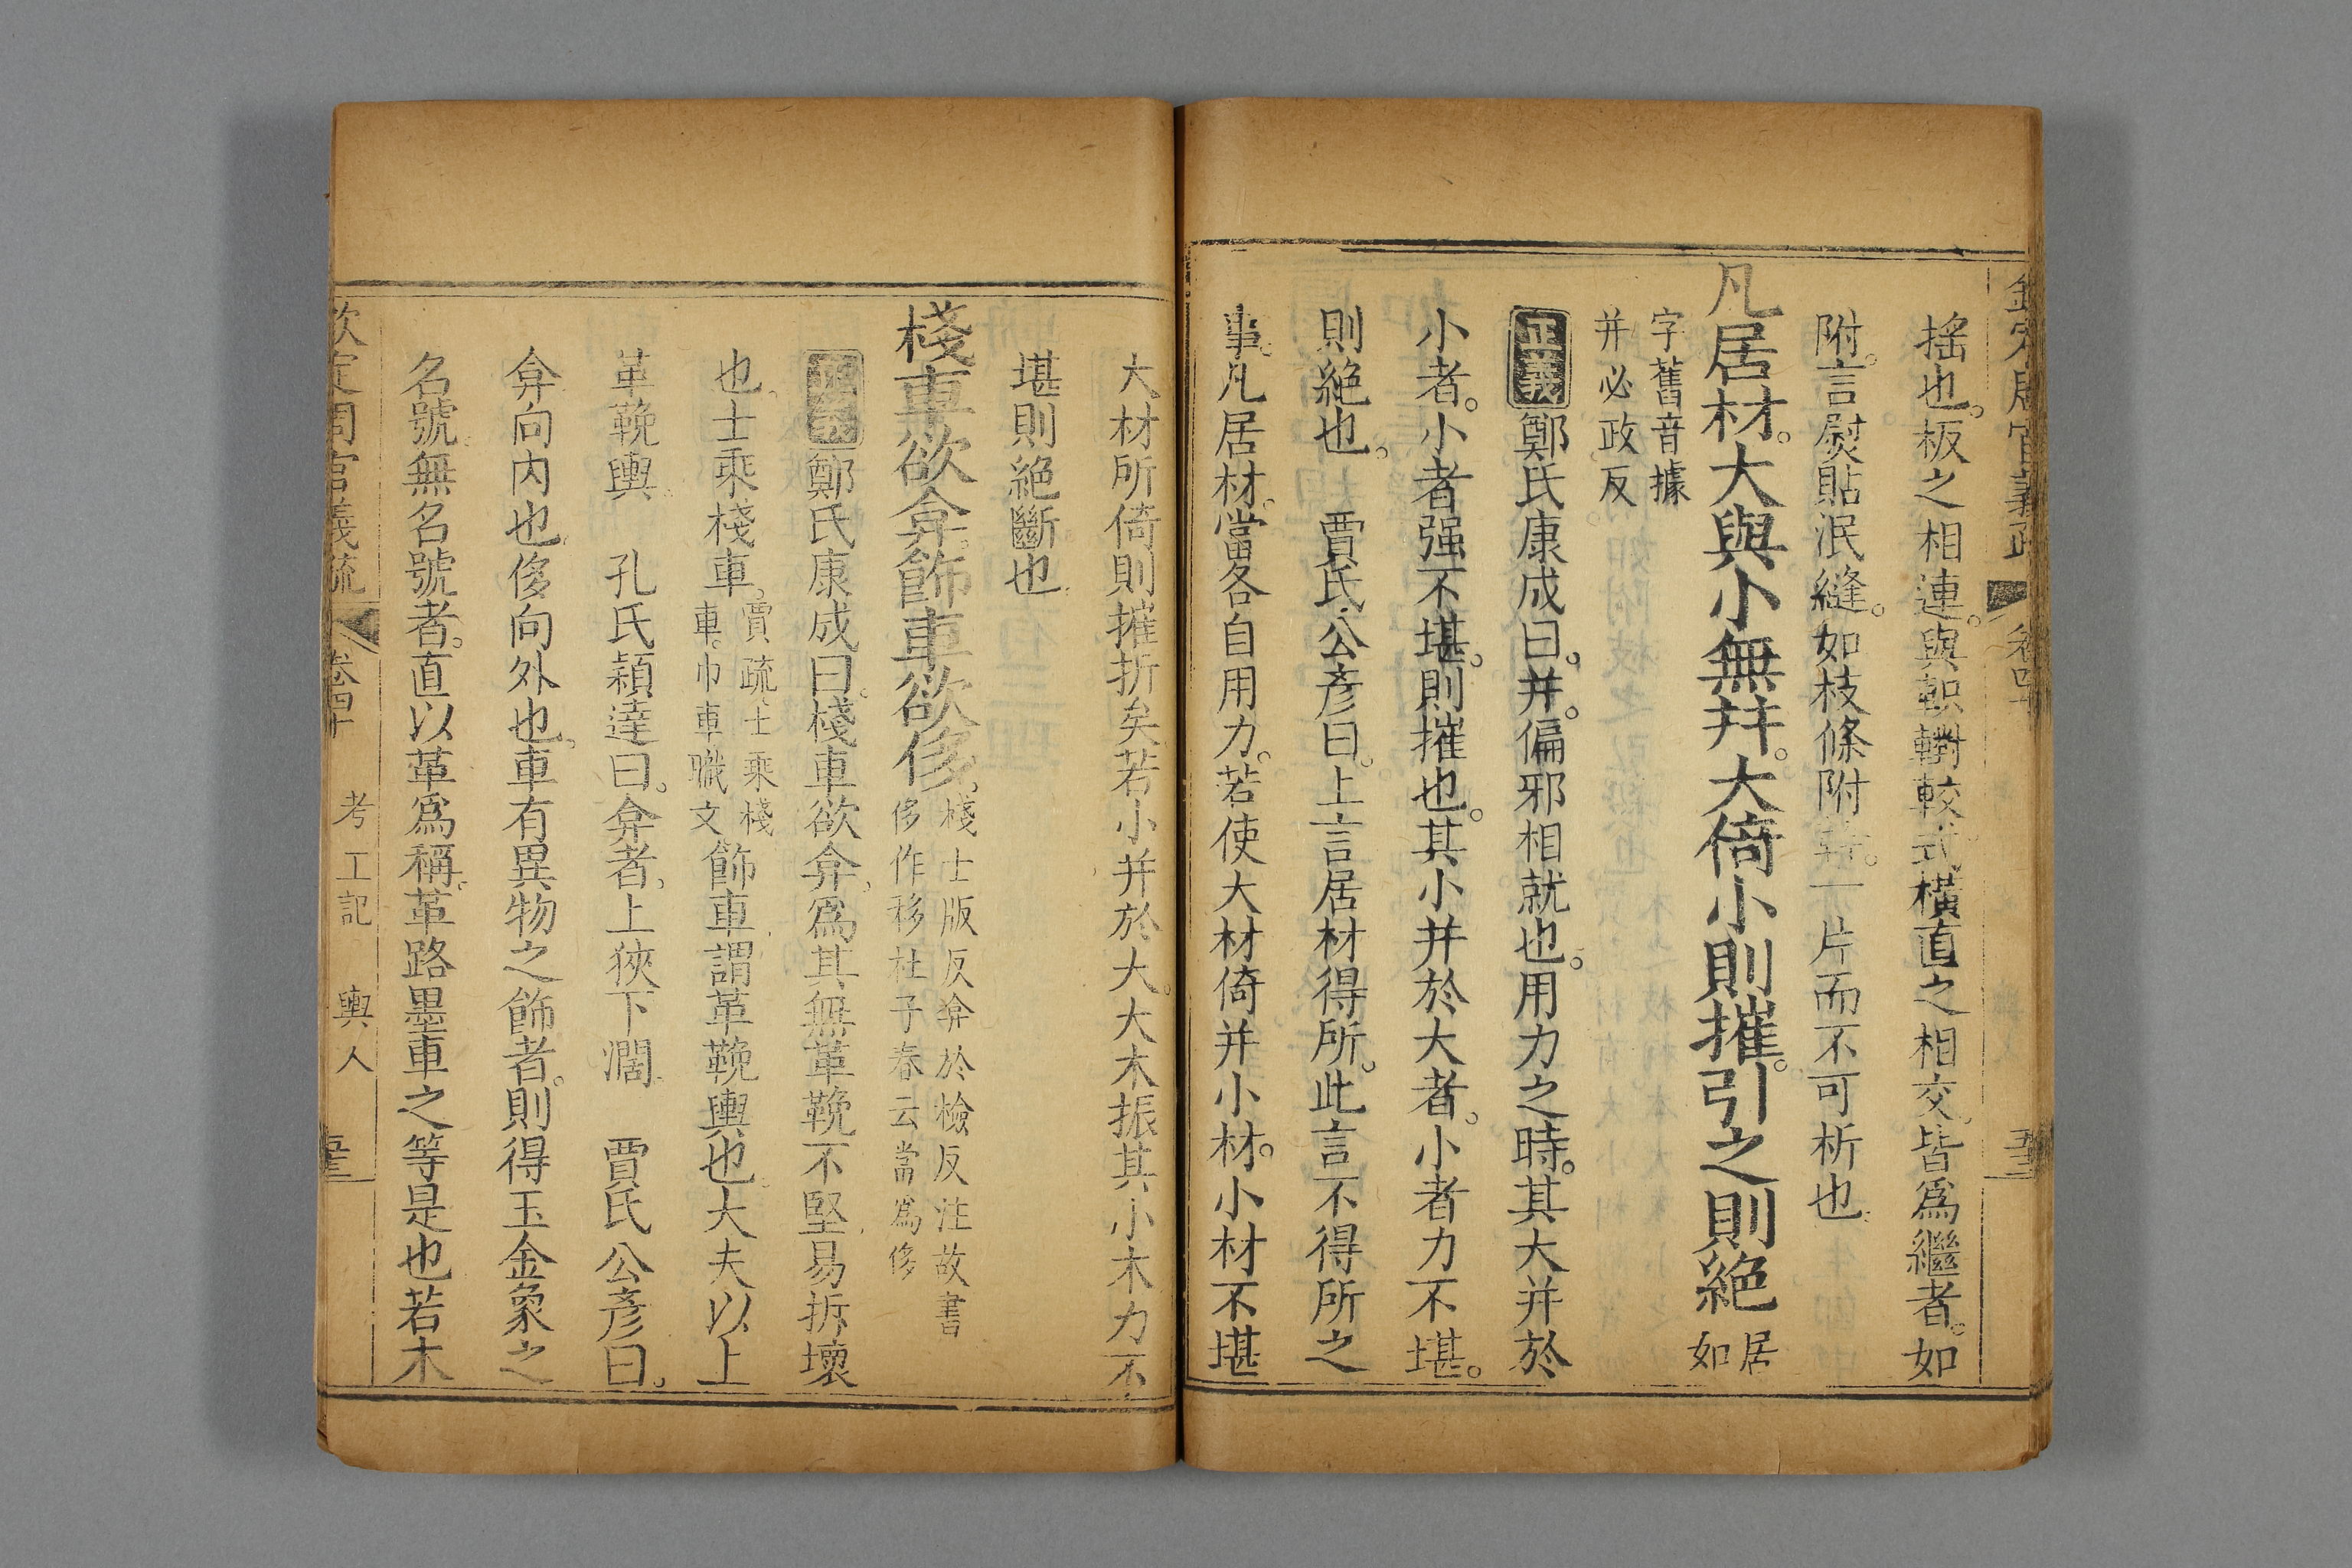 欽定周官義疏 卷四十
搖也。板之相連。與軹轛較式橫直之相交。皆爲繼者。如
附。言熨貼泯縫。如枝條附幹。一片而不可析也
凡居材。大與小無幷。大倚小則摧。引之則絕 居如
字舊音據
并必政反
正義 鄭氏康成曰。幷。偏邪相就也。用力之時。其大并於
小者。小者强不堪。則摧也。其小幷於大者。小者力不堪。
則絕也。 賈氏公彥曰。上言居材得所。此言不得所之
事。凡居材。當各自用力。若使大材倚并小材。小材不堪
大材所倚則摧折矣若小并於大。大木振其小木力不
堪則絕斷也
棧車欲弇。飾車欲侈。
棧士版反弇於檢反注故書
侈作移杜子春云當爲侈
正義 鄭氏康成曰。棧車欲弇。爲其無革鞔不堅。易拆壞
也。士乘棧車。賈疏士乘棧車。巾車職文飾車謂革鞔輿也。大夫以上
革鞔輿。 孔氏穎達曰。弇者。上狹下濶 賈氏公彥曰。
弇向内也。侈向外也。車有異物之飾者。則得玉金象之
名號。無名號者。直以革爲稱。革路墨車之等是也若木
欽定周官義疏 卷四十 考工記 輿人